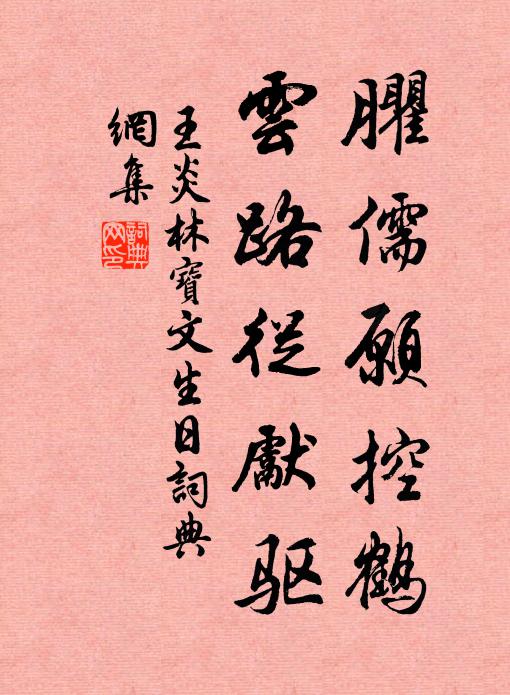 臞儒願控鶴
雲路從獻驱
王炎林寶文生日詞典
網集
詞典网印